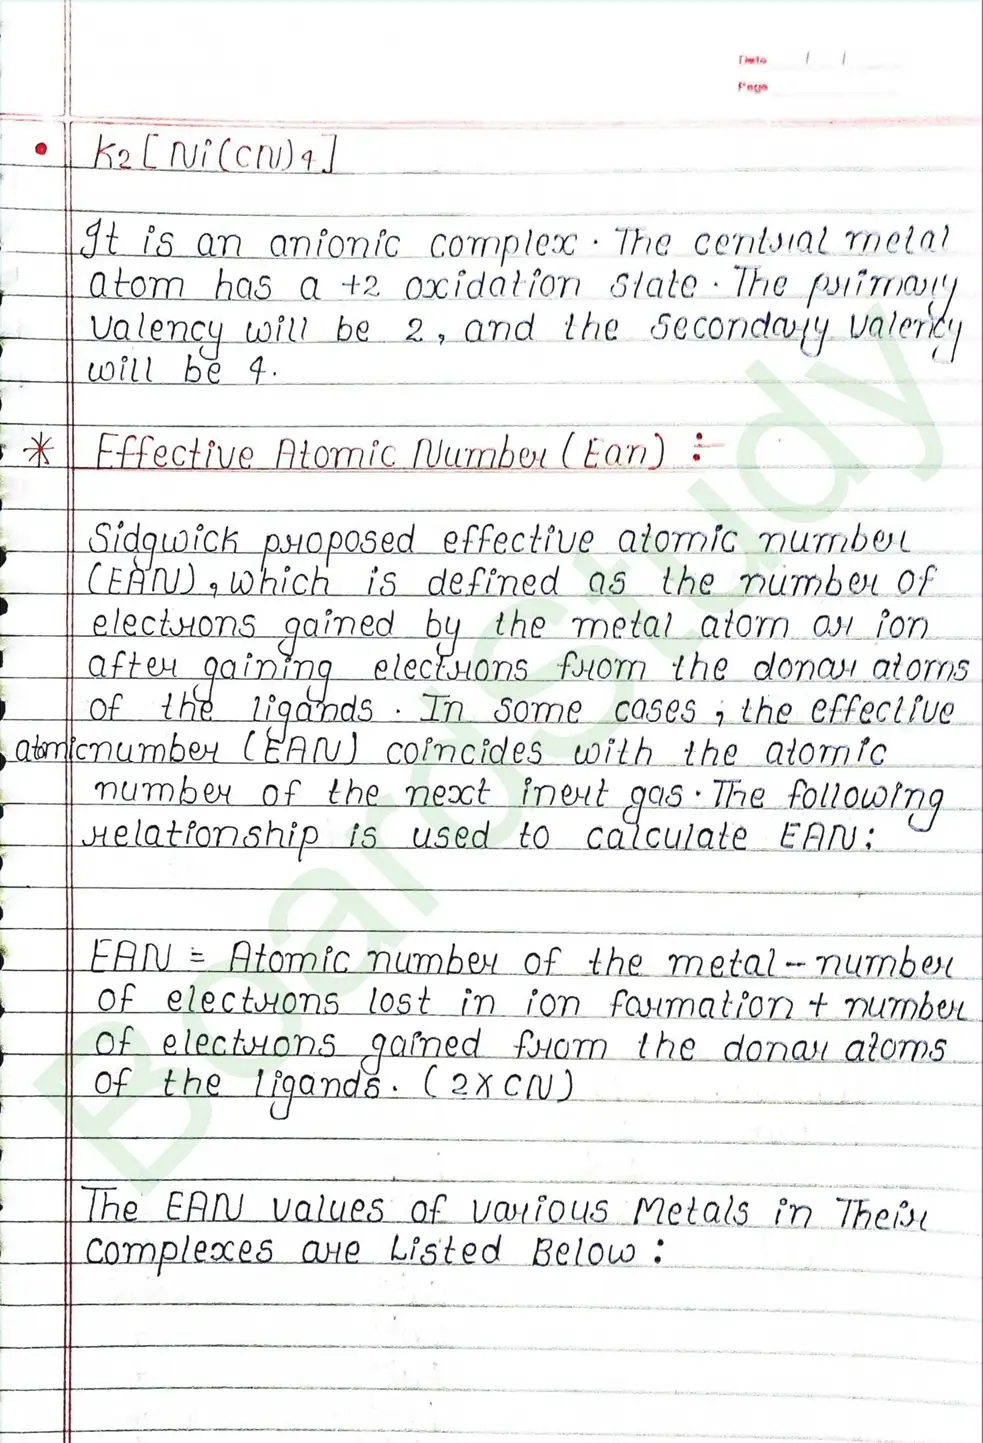 Date / /
Page
K2[Ni(CN)4]
It is an anionic complex. The central metal
atom has a +2 oxidation state. The primary
valency will be 2, and the secondary valency
will be 4.
* Effective Atomic Number (Ean) :-
Sidgwick proposed effective atomic number
(EAN), which is defined as the number of
electrons gained by the metal atom or ion
after gaining electrons from the donar atoms
of the ligands. In some cases, the effective
atomic number (EAN) coincides with the atomic
number of the next inert gas. The following
relationship is used to calculate EAN:
EAN = Atomic number of the metal - number
of electrons lost in ion formation + number
of electrons gained from the donar atoms
of the ligands. (2XCN)
The EAN values of various Metals in Their
complexes are Listed Below:
BoardStudy